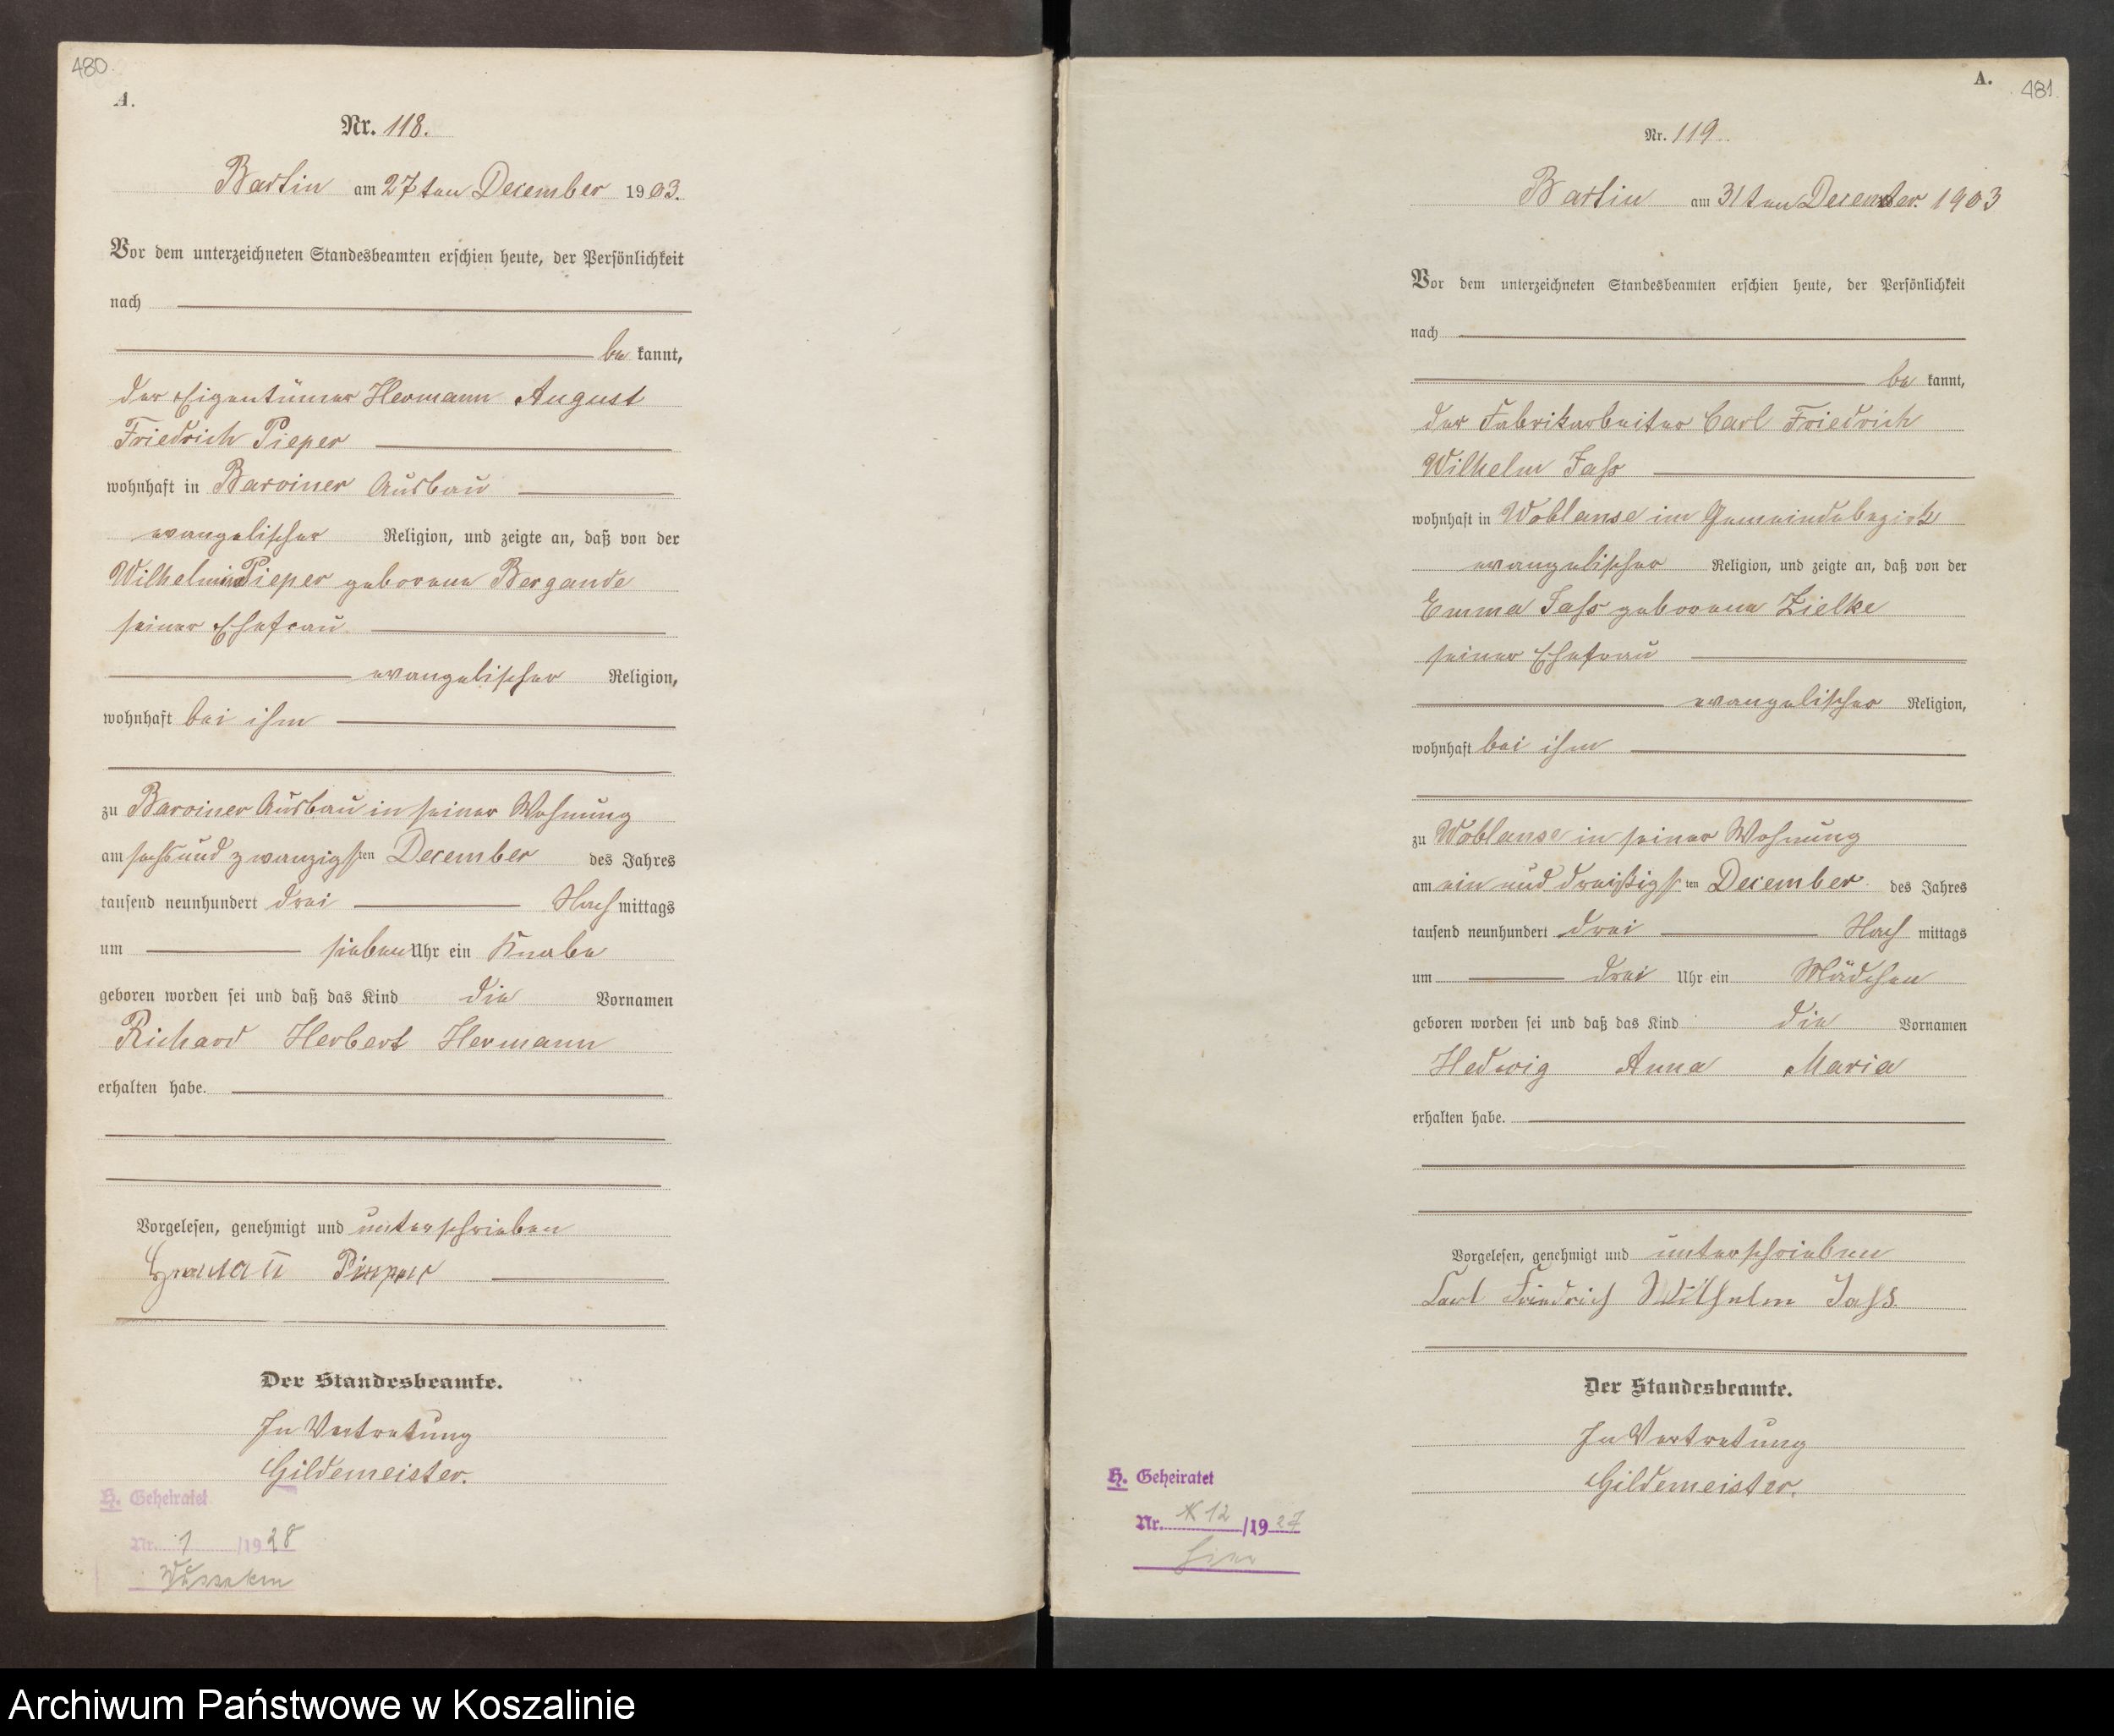 480
A.
Nr. 118.
Bartin am 27ten December 1903.
Vor dem unterzeichneten Standesbeamten erschien heute, der Persönlichkeit
nach
be kannt,
der Eigentümer Hermann August
Friedrich Pieper
wohnhaft in Barviner Ausbau
evangelischer Religion, und zeigte an, daß von der
Wilhelmine Pieper geborene Bergande
seiner Ehefrau
evangelischer Religion,
wohnhaft bei ihm
zu Barviner Ausbau in seiner Wohnung
am sechsundzwanzigsten December des Jahres
tausend neunhundert drei Nachmittags
um sieben Uhr ein Knabe
geboren worden sei und daß das Kind die Vornamen
Richard Herbert Hermann
erhalten habe.
Vorgelesen, genehmigt und unterschrieben
Hermann Pieper
Der Standesbeamte.
In Vertretung
Gildemeister.
H. Geheiratet
Nr. 1 /1928
A.
481
Nr. 119
Bartin am 31ten December 1903
Vor dem unterzeichneten Standesbeamten erschien heute, der Persönlichkeit
nach
be kannt,
der Fabrikarbeiter Carl Friedrich
Wilhelm Jass
wohnhaft in Woblanse im Gemeindebezirk
evangelischer Religion, und zeigte an, daß von der
Emma Jass geborene Zielke
seiner Ehefrau
evangelischer Religion,
wohnhaft bei ihm
zu Woblanse in seiner Wohnung
am ein und dreißigsten December des Jahres
tausend neunhundert drei Nach mittags
um drei Uhr ein Mädchen
geboren worden sei und daß das Kind die Vornamen
Hedwig Anna Maria
erhalten habe.
Vorgelesen, genehmigt und unterschrieben
Carl Friedrich Wilhelm Jass.
Der Standesbeamte.
In Vertretung
Gildemeister.
H. Geheiratet
Nr. 12 /1927
hier
Archiwum Państwowe w Koszalinie